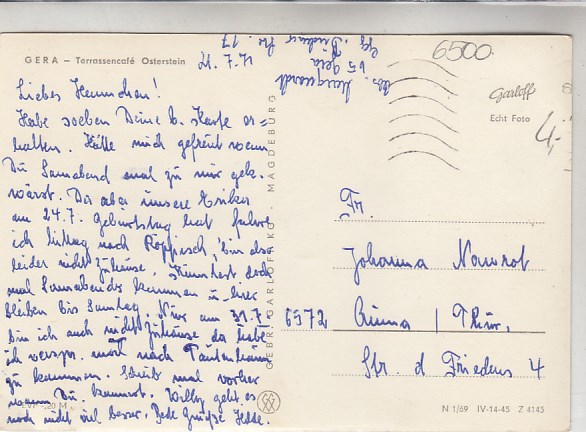 GERA – Terrassencafé Osterstein
12.7.71
65 Gera
Nr. 17
6500
Garloff
Echt Foto
4,-
Liebes Hannchen!
Habe soeben Deine l. Karte er=
halten. Hätte mich gefreut wenn
Du Sonnabend mal zu mir gek.
wärst. Da aber unsere Erika
am 24.7. Geburtstag hat fahre
ich Mittag nach Röppisch, bin also
leider nicht zuhause. Könntest doch
mal Sonnabends kommen u. hier
bleiben bis Sonntag. Nur am 31.7.
bin ich auch nicht zuhause da habe
ich verspr. mal nach Tautenhain
zu kommen. Schreib mal vorher
wann Du kommst. Willy geht es
noch nicht viel besser. Grüße
GEBR. GARLOFF KG. MAGDEBURG
Fr.
Johanna Nowrot
6572 / Thür.
Str. d Friedens 4
-,20 M
N 1/69 IV-14-45 Z 4145